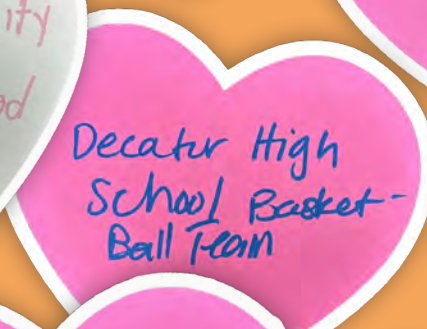 ity
od
Decatur High
School Basket-
Ball Team